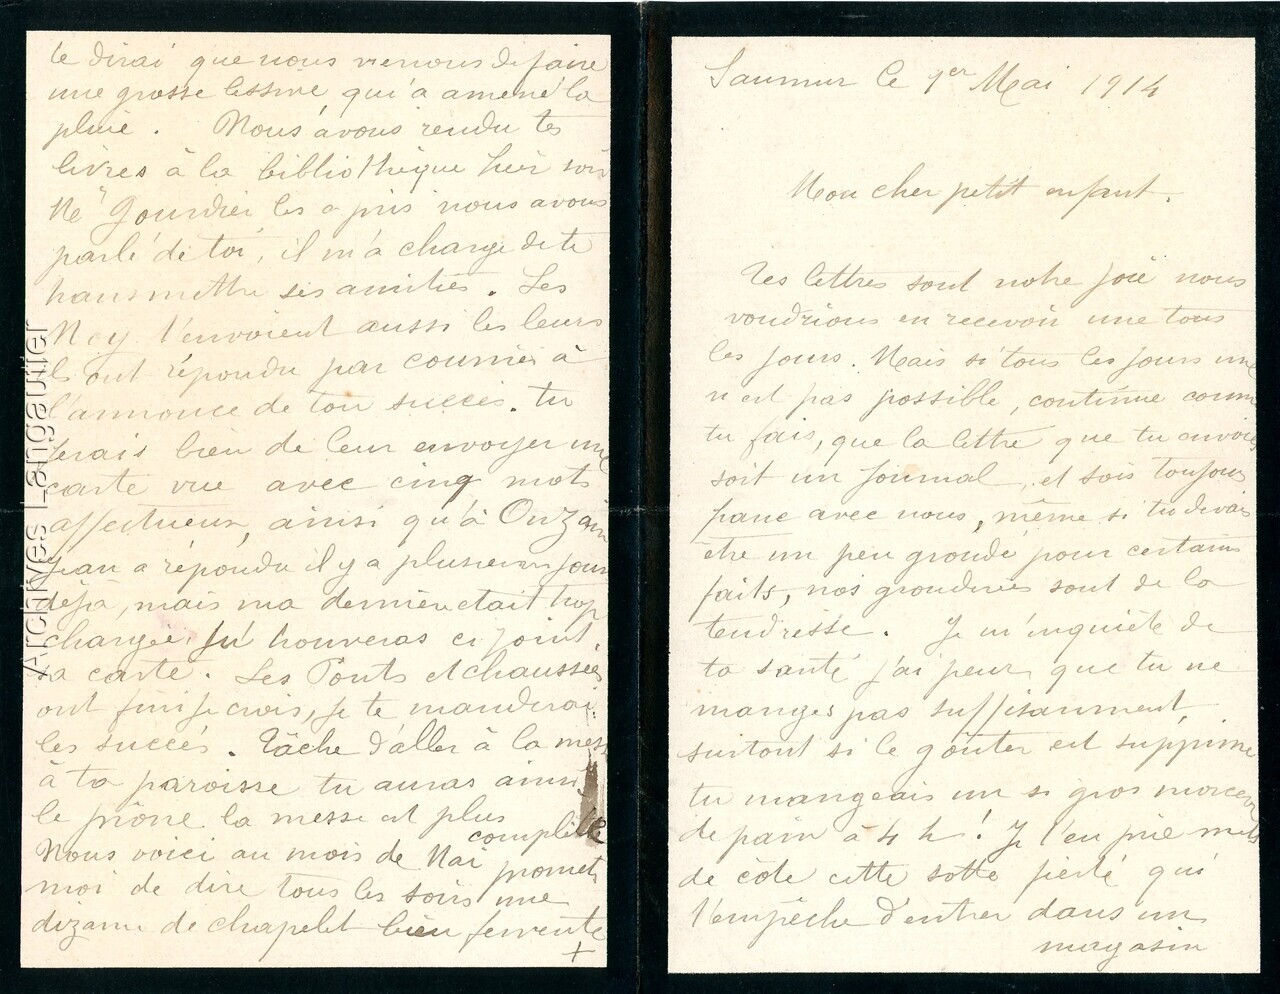 Saumur le 1er Mai 1914
Mon cher petit enfant.
Tes lettres sont notre joie nous
voudrions en recevoir une tous
les jours. Mais si tous les jours une
n'est pas possible, continue comm
tu fais, que la lettre que tu envoies
soit un journal, et sois toujours
franc avec nous, même si tu devais
être un peu grondé pour certains
faits, nos gronderies sont de la
tendresse. Je m'inquiète de
ta santé j'ai peur que tu ne
manges pas suffisamment,
surtout si le goûter est supprimé
tu mangeais un si gros morceau
de pain à 4 h! Je t'en prie mets
de côté cette sotte fierté qui
t'empêche d'entrer dans un
magasin
te dirai que nous venons de faire
une grosse lessive, qui a amené la
pluie. Nous avons rendu tes
livres à la bibliothèque hier soir
Gourdier les a pris nous avons
parlé de toi, il m'a chargé de te
transmettre ses amitiés. Les
Ney t'envoient aussi les leurs
ils ont répondu par courrier à
l'annonce de ton succès. tu
ferais bien de leur envoyer une
carte vue avec cinq mots
affectueux, ainsi qu'à Onzain
Jean a répondu il y a plusieurs jours
déjà, mais ma dernière était trop
chargée, tu trouveras ci joint
sa carte. Les Ponts et chaussées
ont fini je crois, je te manderai
les succès. Tâche d'aller à la messe
à ta paroisse tu auras ainsi
le prône la messe est plus
complète
Nous voici au mois de Mai promets
moi de dire tous les soirs une
dizaine de chapelet bien fervente
+
Archives Langautier